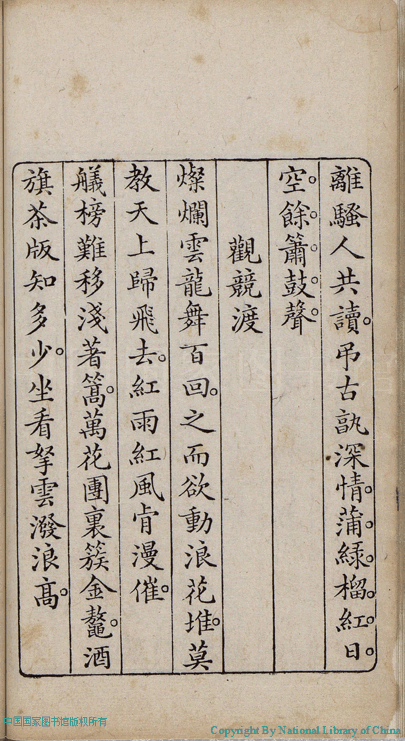 離騷人共讀。弔古孰深情。蒲綠。榴紅。日。
空。餘。簫。鼓。聲。
觀競渡
燦爛雲龍舞百回。之而欲動浪花堆。莫
教天上歸飛去。紅雨紅風肯漫催。
艤榜難移淺著篙。萬花團裏簇金鼇。酒
旗茶版知多少。坐看拏雲潑浪高。
中国国家图书馆版权所有
Copyright By National Library of China